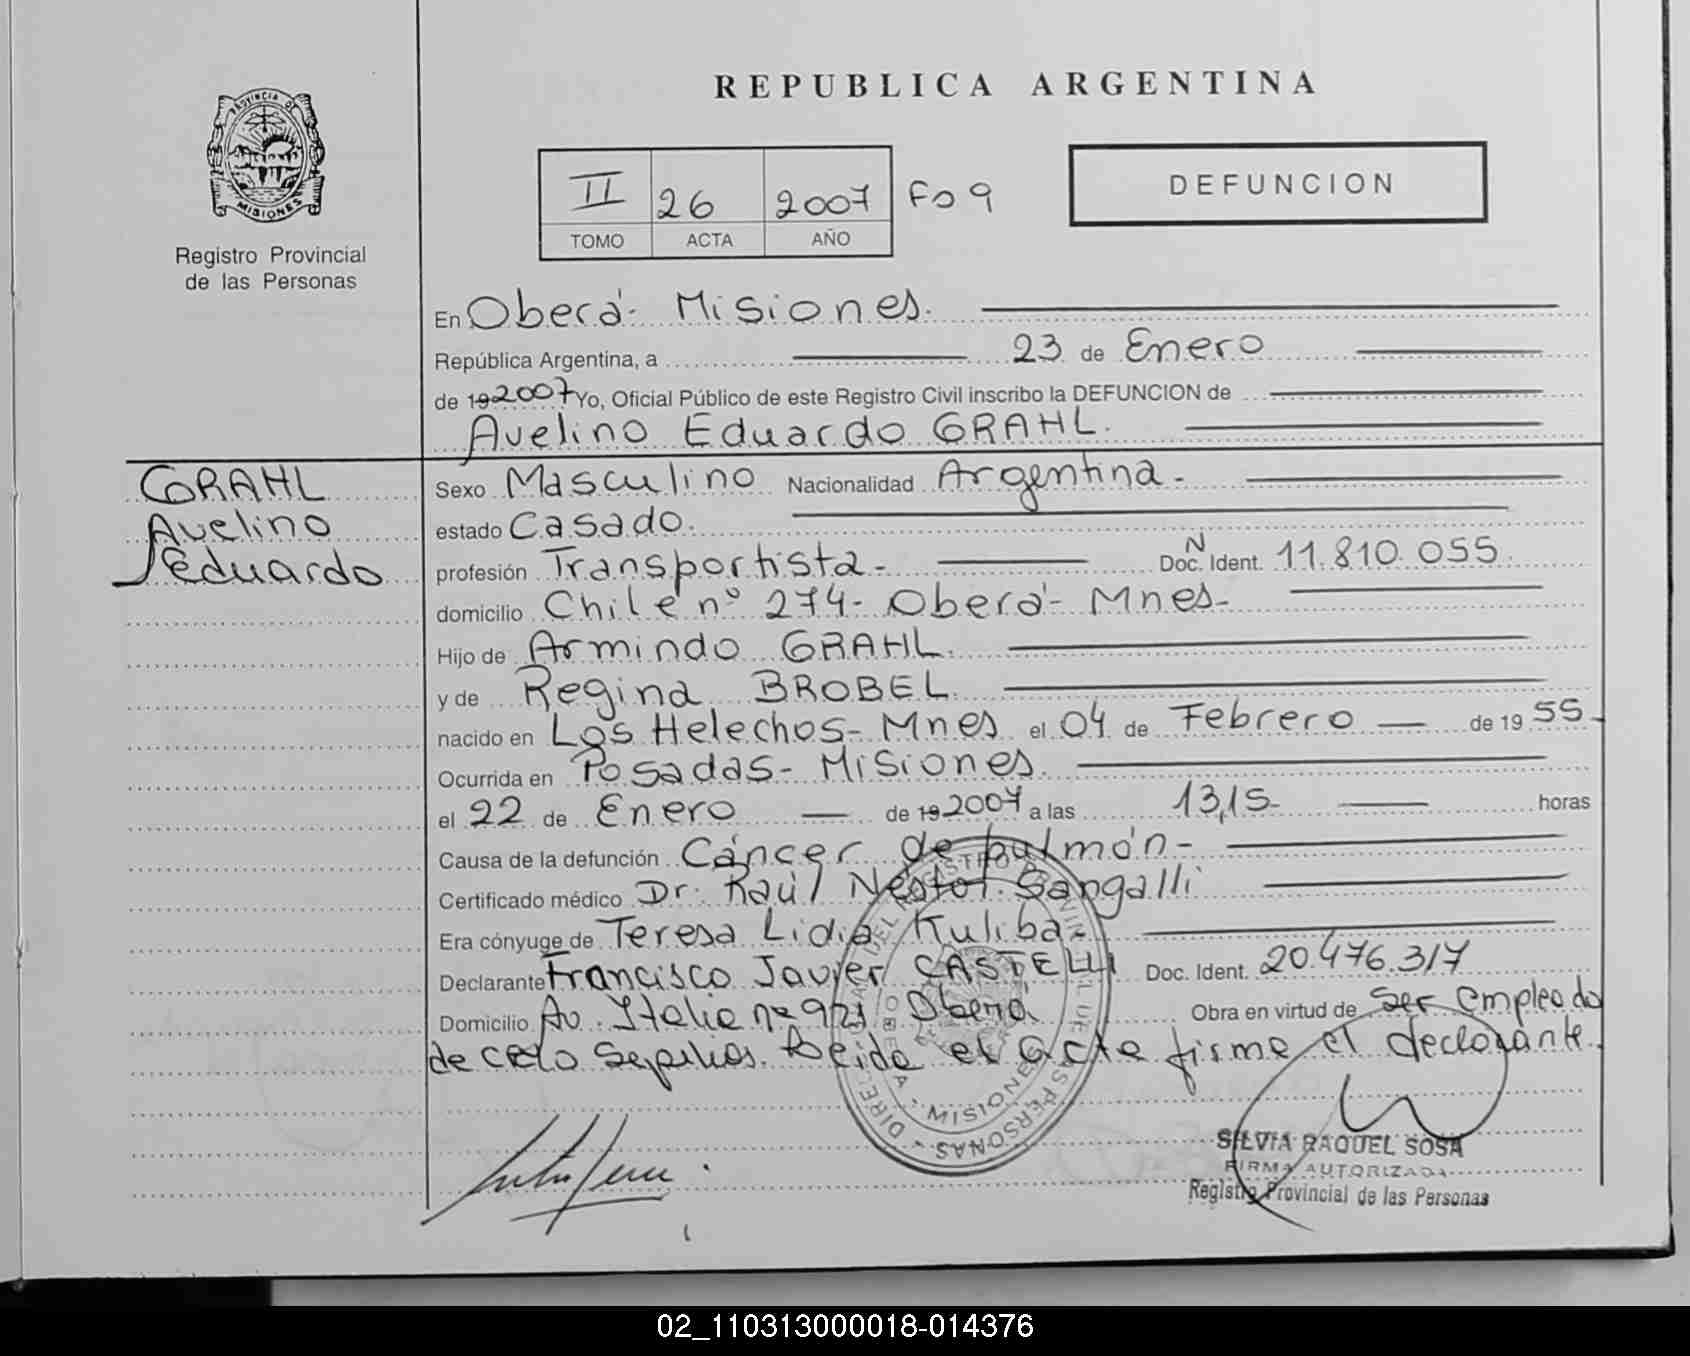 REPUBLICA ARGENTINA
PROVINCIA DE
MISIONES
Registro Provincial
de las Personas
II 26 2007 Fo 9
TOMO ACTA AÑO
DEFUNCION
En Oberá- Misiones.
República Argentina, a 23 de Enero
de 19 2007 Yo, Oficial Público de este Registro Civil inscribo la DEFUNCION de
Avelino Eduardo GRAHL.
GRAHL
Avelino
Eduardo
Sexo Masculino Nacionalidad Argentina-
estado Casado.
profesión Transportista- Doc. N Ident. 11.810.055
domicilio Chile nº 274- Oberá- Mnes-
Hijo de Armindo GRAHL.
y de Regina BROBEL.
nacido en Los Helechos- Mnes el 04 de Febrero — de 19 55-
Ocurrida en Posadas- Misiones.
el 22 de Enero — de 19 2007 a las 13,15- horas
Causa de la defunción Cáncer de pulmón-
Certificado médico Dr. Raúl Nestor Sangalli
Era cónyuge de Teresa Lidia Kuliba-
Declarante Francisco Javier CASTELLI Doc. Ident. 20.476.317
Domicilio Av. Italia nº 921 Oberá Obra en virtud de Ser empleado
de Sepelios. Leida el acta firma el declarante.
DIRECCION REGISTRO PROVINCIAL DE LAS PERSONAS
OBERA - MISIONES
SILVIA RAQUEL SOSA
FIRMA AUTORIZADA
Registro Provincial de las Personas
02_110313000018-014376